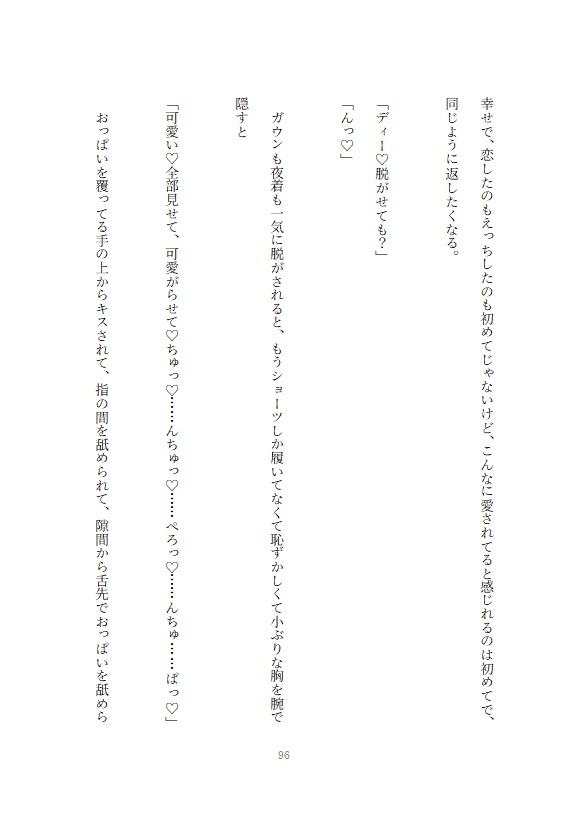 幸せで、恋したのもえっちしたのも初めてじゃないけど、こんなに愛されてると感じれるのは初めてで、
同じように返したくなる。
「ディー♡脱がせても？」
「んっ♡」
ガウンも夜着も一気に脱がされると、もうショーツしか履いてなくて恥ずかしくて小ぶりな胸を腕で
隠すと
「可愛い♡全部見せて、可愛がらせて♡ちゅっ♡……んちゅっ♡……ぺろっ♡……んちゅ……ぱっ♡」
おっぱいを覆ってる手の上からキスされて、指の間を舐められて、隙間から舌先でおっぱいを舐めら
96